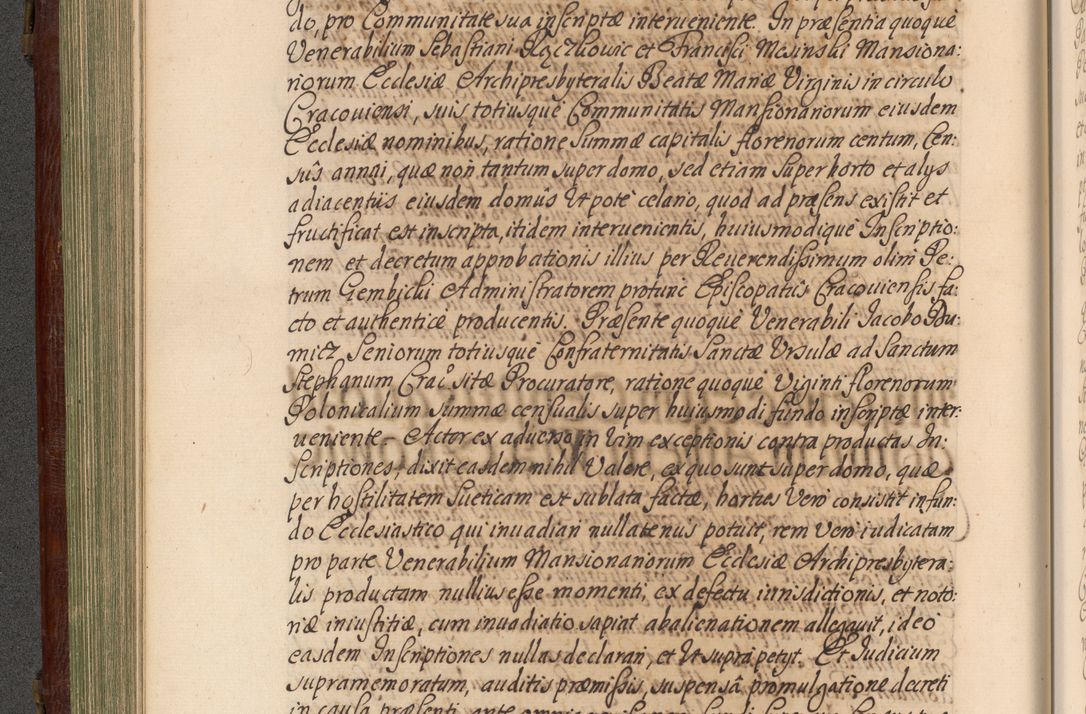 do, pro Communitate sua inscriptæ interveniente. In præsentia quoque
Venerabilium Sebastiani Rączkowic et Francisci Misinski Mansiona:
riorum Ecclesiæ Archipresbyteralis Beatæ Mariæ Virginis in circulo
Cracoviensi, suis totiusque Communitatis Mansionariorum eiusdem
Ecclesiæ nominibus, ratione Summæ capitalis florenorum centum, Cen:
sûs annui, quæ non tantum super domo, sed etiam super horto et alijs
adiacentiis eiusdem domûs Utpotè celario, quod ad præsens existit et
fructificat est inscripta, itidem intervenientis, huiusmodique Inscriptio:
nem et decretum approbationis illius per Reverendissimum olim Pe:
trum Gembicki Administratorem protunc Episcopatus Cracoviensis fa:
cto et authenticæ producentis. Præsente quoque Venerabili Jacobo
micz, Seniorum totiusque Confraternitatis Sanctæ Ursulæ ad Sanctum
Stephanum Crac: sitæ Procuratore, ratione quoque Viginti florenorum
Polonicalium summæ censualis super huiusmodi fundo inscriptæ inter:
veniente. Actor ex adverso in Vim exceptionis contra productas In:
scriptiones, dixit easdem nihil Valere, ex quo sunt super domo, quæ
per hostilitatem Sueticam est sublata factæ, hortus Vero consistit in fun:
do Ecclesiastico qui invadiari nullatenus potuit, rem Vero iudicatam
pro parte Venerabilium Mansionariorum Ecclesiæ Archipresbytera:
lis productam nullius esse momenti, ex defectu iurisdictionis, et noto:
riæ iniustitiæ, cum invadiatio sapiat abalienationem allegavit, ideo
easdem Inscriptiones nullas declarari, et Ut supra petijt. Et Iudicium
supramemoratum, auditis præmissis, suspensâ promulgatione decreti
in causa præsenti